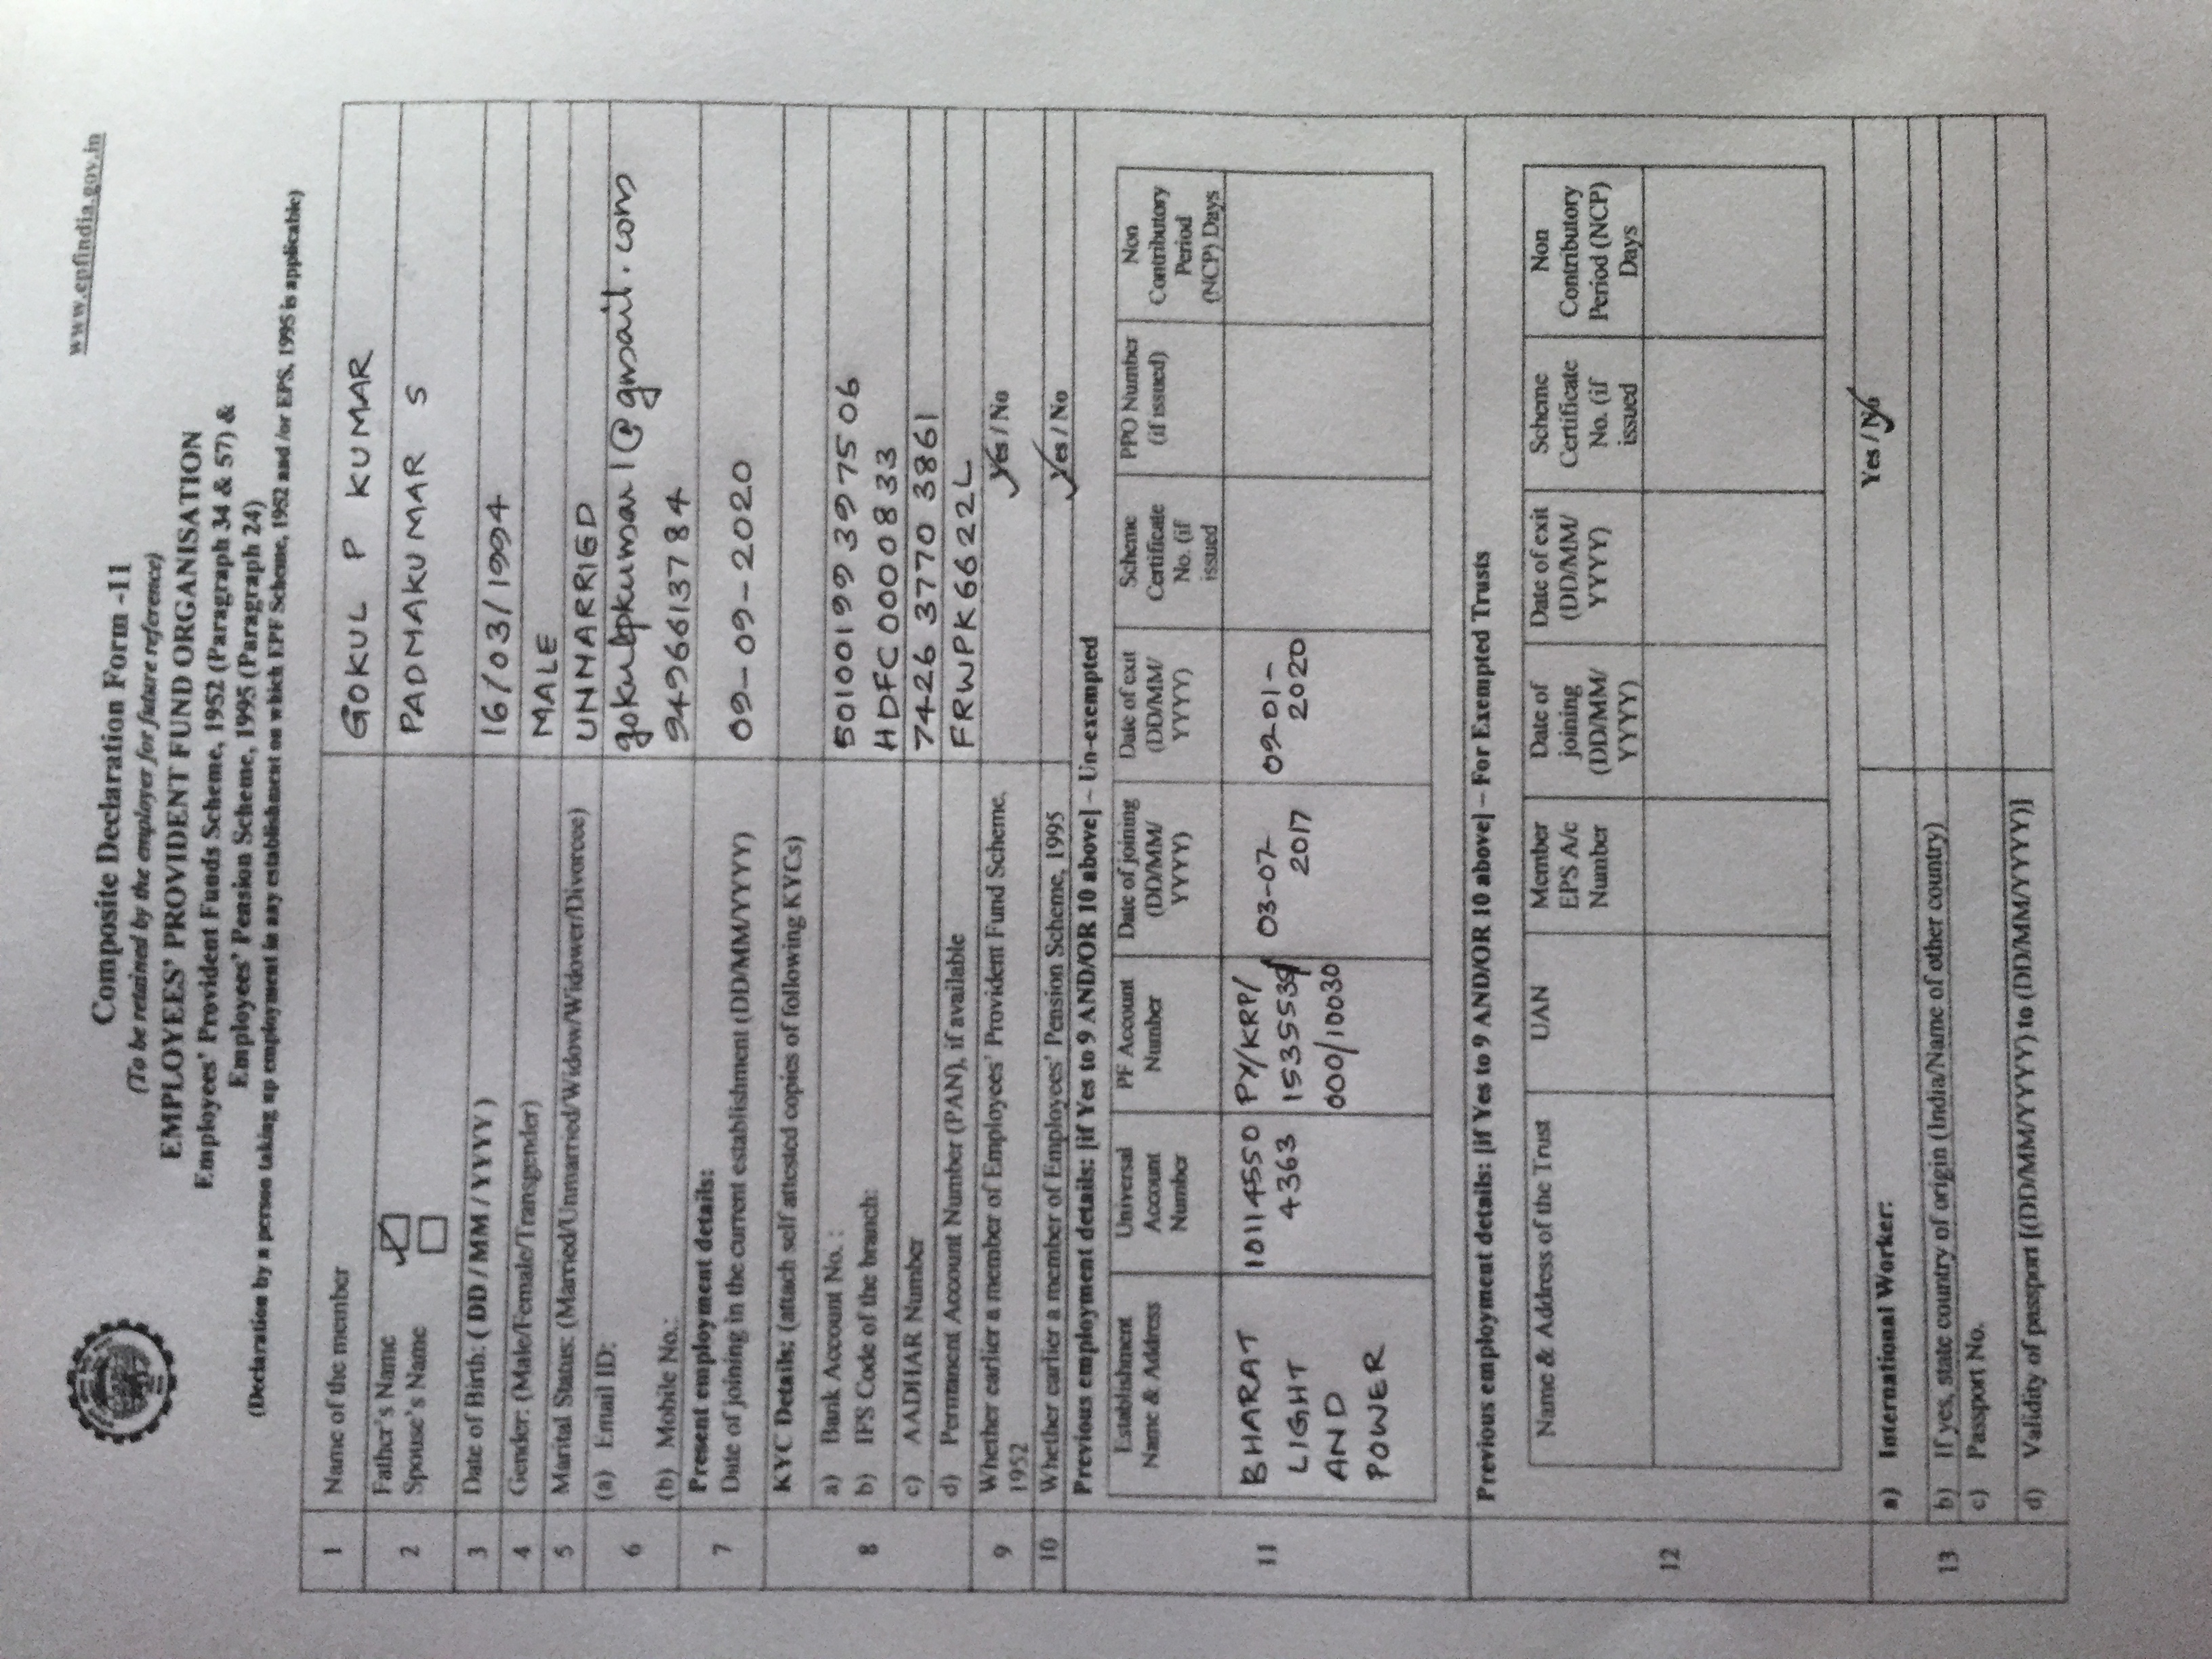 www.epfindia.gov.in
Composite Declaration Form -11
(To be retained by the employer for future reference)
EMPLOYEES' PROVIDENT FUND ORGANISATION
Employees' Provident Funds Scheme, 1952 (Paragraph 34 & 57) &
Employees' Pension Scheme, 1995 (Paragraph 24)
(Declaration by a person taking up employment in any establishment on which EPF Scheme, 1952 and /or EPS, 1995 is applicable)
1 Name of the member GOKUL P KUMAR
2 Father's Name PADMAKUMAR S
Spouse's Name
3 Date of Birth: ( DD / MM / YYYY ) 16/03/1994
4 Gender: (Male/Female/Transgender) MALE
5 Marital Status: (Married/Unmarried/Widow/Widower/Divorcee) UNMARRIED
6 (a) Email ID: gokulpkumar1@gmail.com
(b) Mobile No.: 9496613784
7 Present employment details:
Date of joining in the current establishment (DD/MM/YYYY) 09-09-2020
8 KYC Details: (attach self attested copies of following KYCs)
a) Bank Account No. : 50100199397506
b) IFS Code of the branch: HDFC0000833
c) AADHAR Number 7426 3770 3861
d) Permanent Account Number (PAN), if available FRWPK6622L
9 Whether earlier a member of Employees' Provident Fund Scheme, Yes / No
1952
10 Whether earlier a member of Employees' Pension Scheme, 1995 Yes / No
11 Previous employment details: [if Yes to 9 AND/OR 10 above] – Un-exempted
Establishment Universal PF Account Date of joining Date of exit Scheme PPO Number Non
Name & Address Account Number (DD/MM/ (DD/MM/ Certificate (if issued) Contributory
Number YYYY) YYYY) No. (if Period
issued (NCP) Days
BHARAT 10114550 PY/KRP/ 03-07- 09-01-
LIGHT 4363 1535539/ 2017 2020
AND 000/10030
POWER
12 Previous employment details: [if Yes to 9 AND/OR 10 above] – For Exempted Trusts
Name & Address of the Trust UAN Member Date of Date of exit Scheme Non
EPS A/c joining (DD/MM/ Certificate Contributory
Number (DD/MM/ YYYY) No. (if Period (NCP)
YYYY) issued Days
13 a) International Worker: Yes / No
b) If yes, state country of origin (India/Name of other country)
c) Passport No.
d) Validity of passport [(DD/MM/YYYY) to (DD/MM/YYYY)]